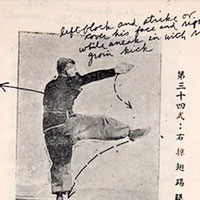 left block and strike or
cover his face and righ
while sneak in with r
groin kick
第三十四式：右撩翅踢